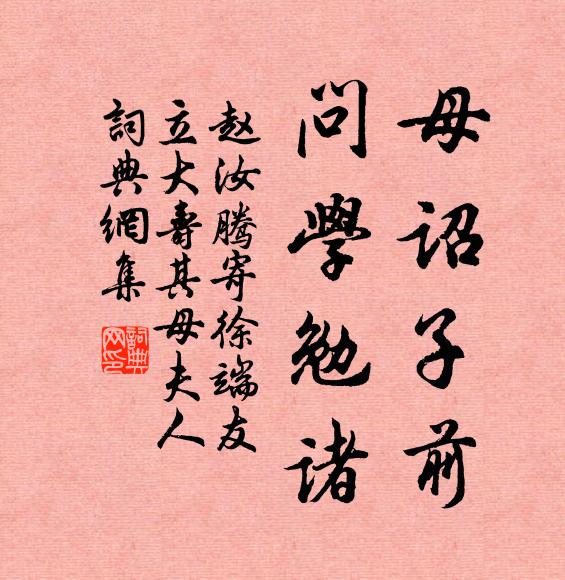 母诏子前
问学勉诸
赵汝腾寄徐端友
立大寿其母夫人
词典网集
词典网印